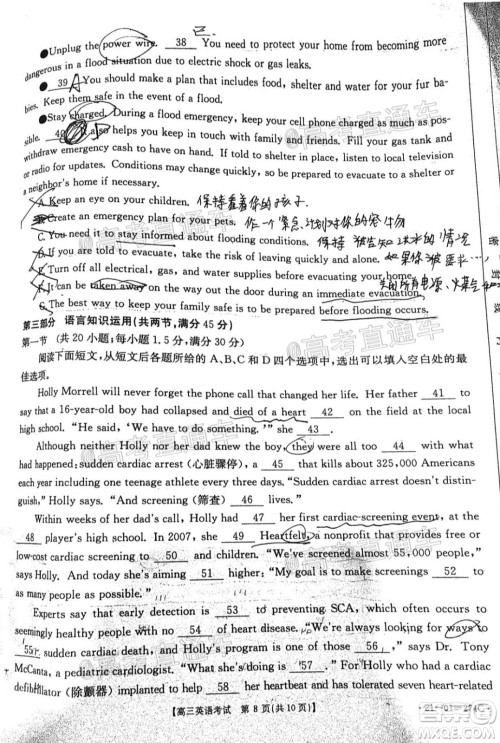 ●Unplug the power wire. 38 You need to protect your home from becoming more
dangerous in a flood situation due to electric shock or gas leaks.
● 39 A You should make a plan that includes food, shelter and water for your fur ba-
bies. Keep them safe in the event of a flood.
●Stay charged. During a flood emergency, keep your cell phone charged as much as pos-
sible. 40 also helps you keep in touch with family and friends. Fill your gas tank and
withdraw emergency cash to have on hand. If told to shelter in place, listen to local television
or radio for updates. Conditions may change quickly, so be ready to evacuate to a shelter or
a neighbor's home if necessary.
A. Keep an eye on your children. 保持看着你的孩子
B. Create an emergency plan for your pets. 作一个紧急计划对你的宠物
C. You need to stay informed about flooding conditions. 保持 被告知 洪水的情况
D. If you are told to evacuate, take the risk of leaving quickly and alone. 如果你被
E. Turn off all electrical, gas, and water supplies before evacuating your home.
F. It can be taken away on the way out during an immediate evacuation.
G. The best way to keep your family safe is to be prepared before flooding occurs.
第三部分 语言知识运用(共两节,满分 45 分)
第一节 (共 20 小题;每小题 1.5 分,满分 30 分)
阅读下面短文,从短文后各题所给的 A、B、C 和 D 四个选项中,选出可以填入空白处的最
佳选项。
Holly Morrell will never forget the phone call that changed her life. Her father 41 to
say that a 16-year-old boy had collapsed and died of a heart 42 on the field at the local
high school. "He said, 'We have to do something.'" she 43 .
Although neither Holly nor her dad knew the boy, they were all too 44 with what
had happened: sudden cardiac arrest (心脏骤停), a 45 that kills about 325,000 Americans
each year including one teenage athlete every three days. "Sudden cardiac arrest doesn't distin-
guish," Holly says. "And screening (筛查) 46 lives."
Within weeks of her dad's call, Holly had 47 her first cardiac-screening event, at the
48 player's high school. In 2007, she 49 Heartfelt, a nonprofit that provides free or
low-cost cardiac screening to 50 and children. "We've screened almost 55,000 people,"
says Holly. And today she's 51 higher: "My goal is to make screenings 52 to as
many people as possible."
Experts say that early detection is 53 to preventing SCA, which often occurs to
seemingly healthy people with no 54 of heart disease. "We're always looking for ways to
55 sudden cardiac death, and Holly's program is one of those 56 ," says Dr. Tony
McCanta, a pediatric cardiologist. "What she's doing is 57 ." For Holly with a
defibrillator (除颤器) implanted to help 58 her heartbeat and has tolerated seven heart-related
·高三英语考试 第 8 页(共 10 页)·